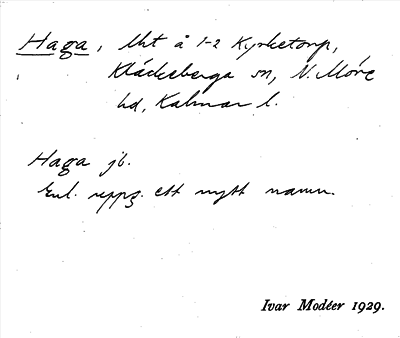 Haga, lht å 1-2 Kyrketorp,
Kläckeberga sn, N. Möre
hd, Kalmar l.
Haga jb.
Enl. uppg. ett nytt namn.
Ivar Modéer 1929.